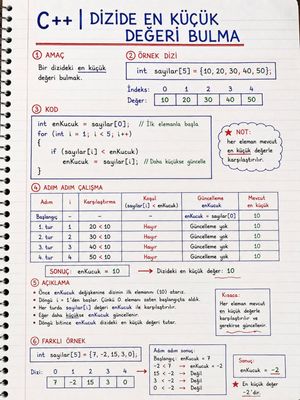 C++ | DİZİDE EN KÜÇÜK
DEĞERİ BULMA
1 AMAÇ
Bir dizideki en küçük
değeri bulmak.
2 ÖRNEK DİZİ
int sayilar[5] = {10, 20, 30, 40, 50};
İndeks: 0 1 2 3 4
Değer: 10 20 30 40 50
3 KOD
int enKucuk = sayilar[0]; // İlk elemanla başla
for (int i = 1; i < 5; i++)
{
if (sayilar[i] < enKucuk)
enKucuk = sayilar[i]; // Daha küçükse güncelle
}
★ NOT:
her eleman mevcut
en küçük değerle
karşılaştırılır.
4 ADIM ADIM ÇALIŞMA
Adım i Karşılaştırma Koşul (sayilar[i] < enKucuk) Güncelleme enKucuk Mevcut en küçük
Başlangıç - - - enKucuk = sayilar[0] 10
1. tur 1 20 < 10 Hayır Güncelleme yok 10
2. tur 2 30 < 10 Hayır Güncelleme yok 10
3. tur 3 40 < 10 Hayır Güncelleme yok 10
4. tur 4 50 < 10 Hayır Güncelleme yok 10
SONUÇ: enKucuk = 10 → Dizideki en küçük değer: 10
5 AÇIKLAMA
• Önce enKucuk değişkenine dizinin ilk elemanını (10) atarız.
• Döngü i = 1'den başlar. Çünkü 0. elemanı zaten başlangıçta aldık.
• Her turda sayilar[i] değeri enKucuk ile karşılaştırılır.
• Eğer daha küçükse enKucuk güncellenir.
• Döngü bitince enKucuk dizideki en küçük değeri tutar.
Kısaca:
Her eleman mevcut
en küçük değerle
karşılaştırılır ve
gerekirse güncellenir.
6 FARKLI ÖRNEK
int sayilar[5] = {7, -2, 15, 3, 0};
Dizi: 0 1 2 3 4
7 -2 15 3 0
Adım adım sonuç:
Başlangıç: enKucuk = 7
-2 < 7 → enKucuk = -2
15 < -2 → Değil
3 < -2 → Değil
0 < -2 → Değil
Sonuç:
enKucuk = -2
★ En küçük değer
-2'dir.